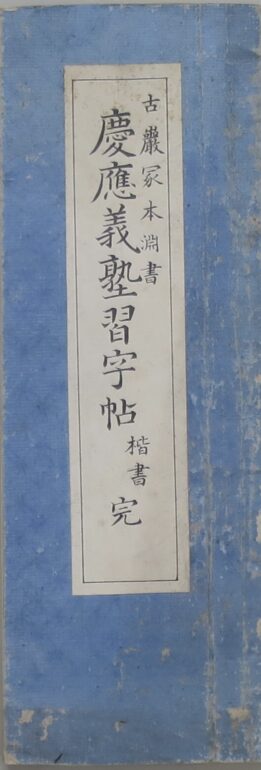 古巖冢本淵書
慶應義塾習字帖 楷書 完